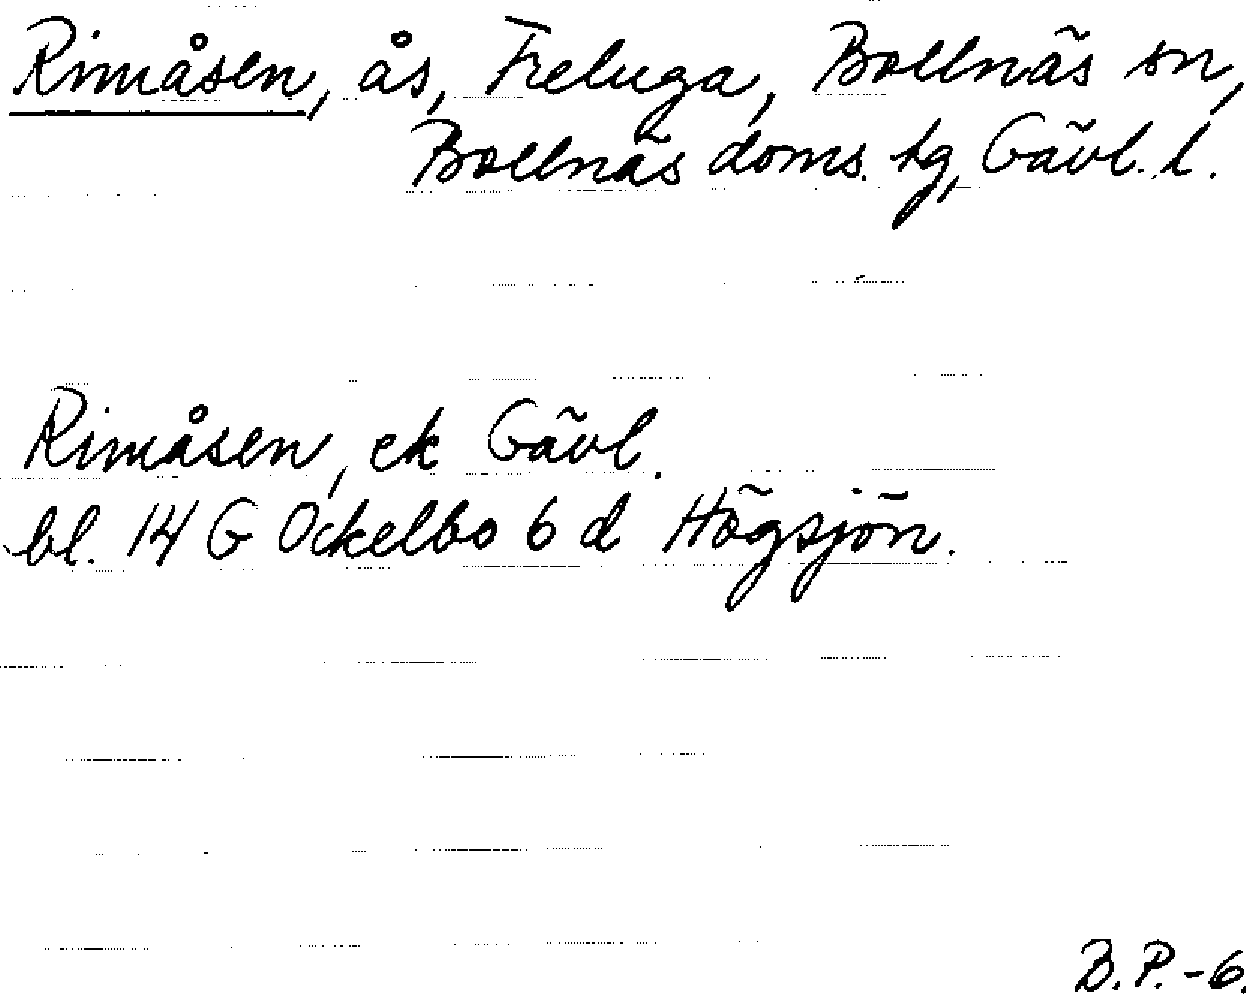 Rimåsen, ås, Freluga, Bollnäs sn,
Bollnäs doms. tg, Gävl. l.
Rimåsen, ek Gävl.
bl. 14 G Ockelbo 6 d Högsjön.
B.P.-6.